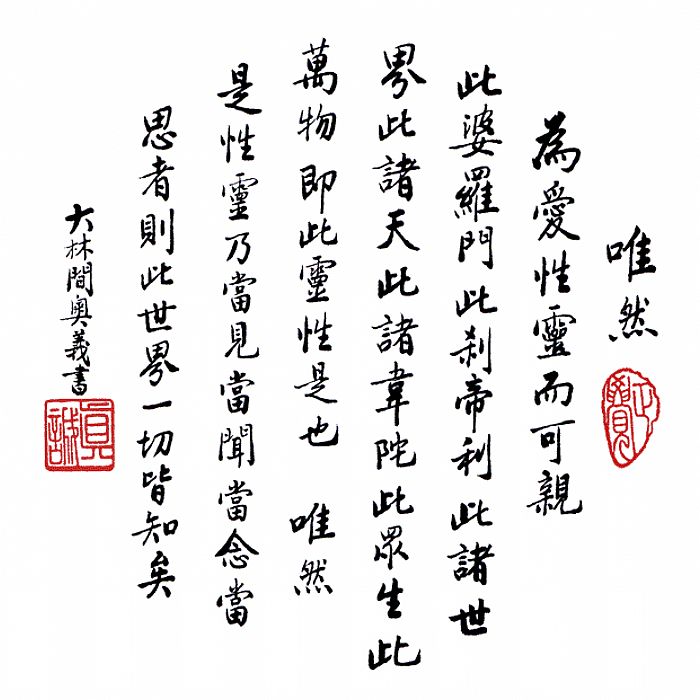 唯然
為愛性靈而可親
此婆羅門此刹帝利此諸世
界此諸天此諸韋陀此眾生此
萬物即此靈性是也 唯然
是性靈乃當見當聞當念當
思者則此世界一切皆知矣
大林間奧義書
真誠